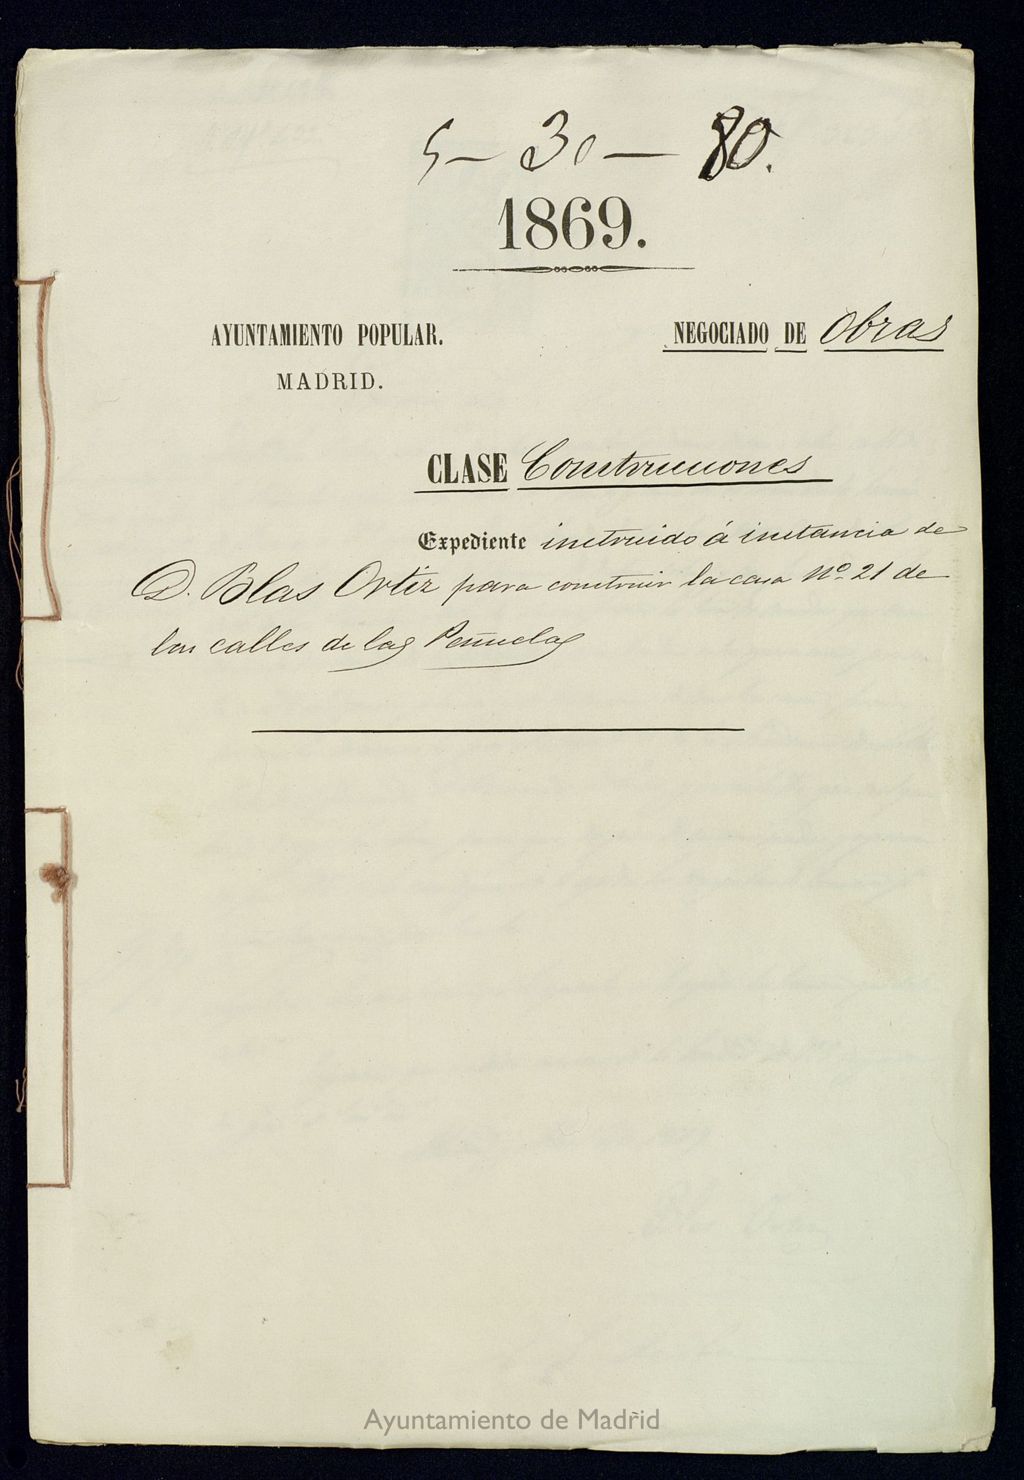 5 - 30 - 80.
1869.
AYUNTAMIENTO POPULAR.
NEGOCIADO DE Obras
MADRID.
CLASE Construcciones
Expediente instruido á instancia de
D. Blas Ortiz para construir la casa Nº. 21 de
las calles de las Peñuelas
Ayuntamiento de Madrid